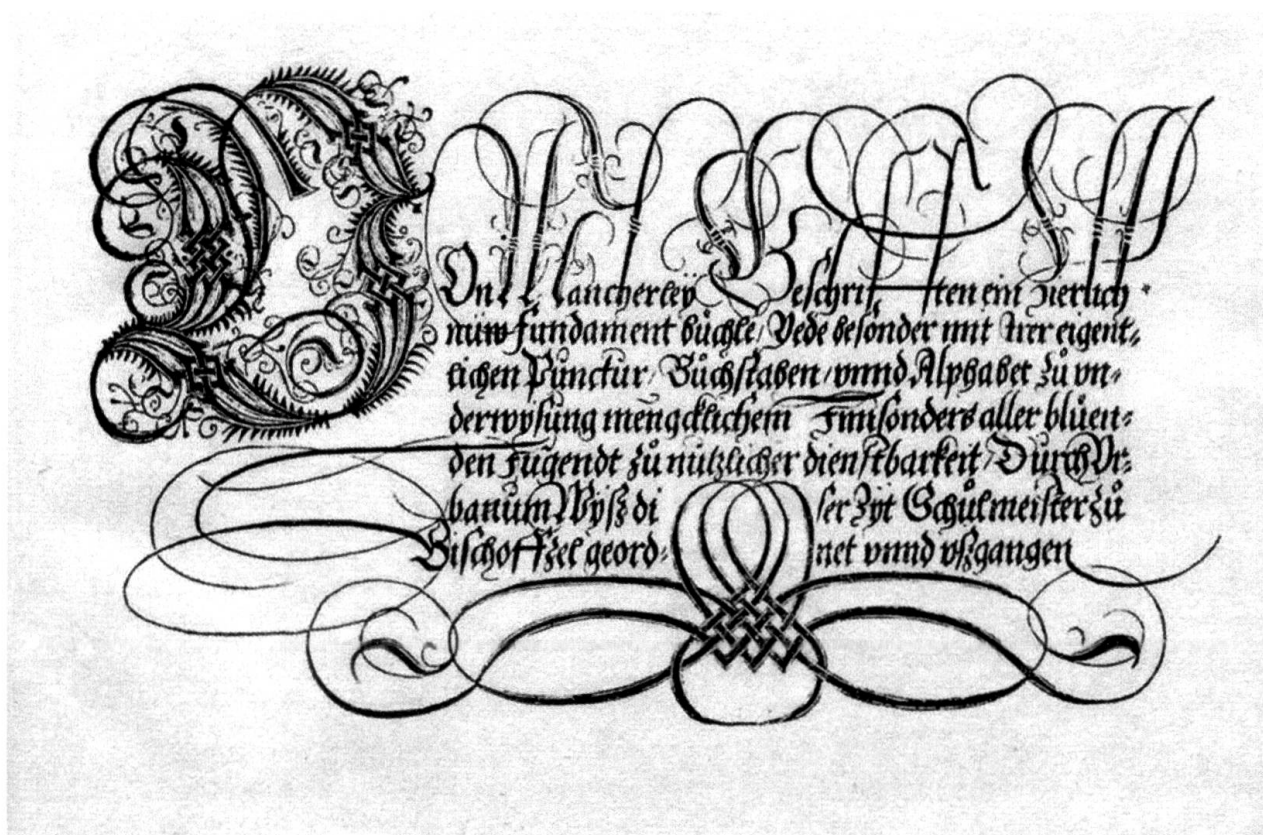 VOn Mancherley Geschrifften ein zierlich
nüw fundament büchle / Yede besonder mit irer eigent-
lichen Punctur / Bůchstaben / vnnd Alphabet zů vn-
derwysung mengcklichem Innsonders aller blůen-
den Jugendt zů nützlicher dienstbarkeit / Durch Vr-
banum Wyß di ser Zyt Schůlmeister zů
Bischoffzel geord- net vnnd vßgangen